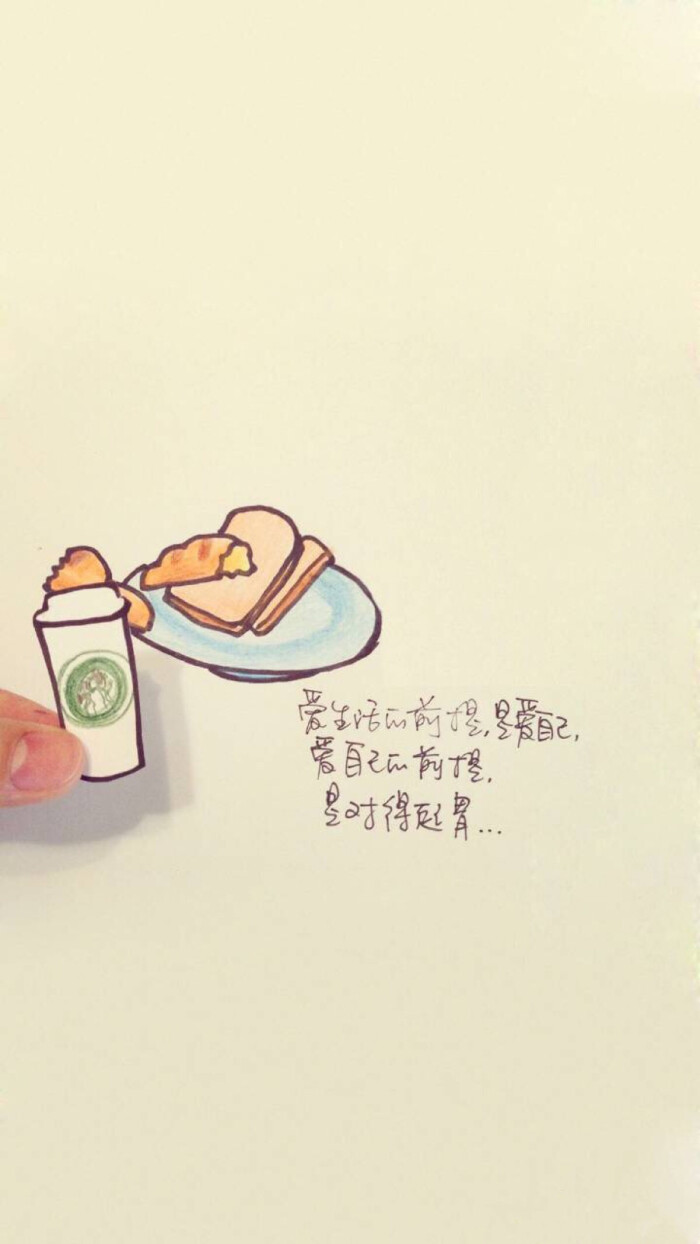 爱生活的前提,是爱自己,
爱自己的前提,
是对得起胃...